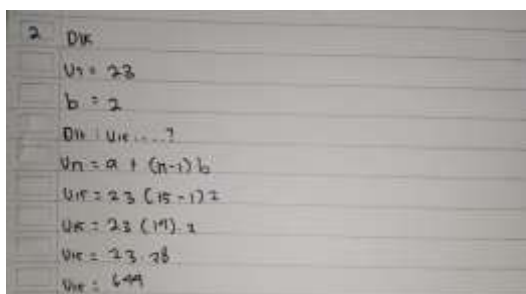 2 Dik
U7 = 23
b = 2
Dit : U15 ....?
Un = a + (n-1) b
U15 = 23 (15-1) 2
U15 = 23 (14). 2
U15 = 23. 28
U15 = 644